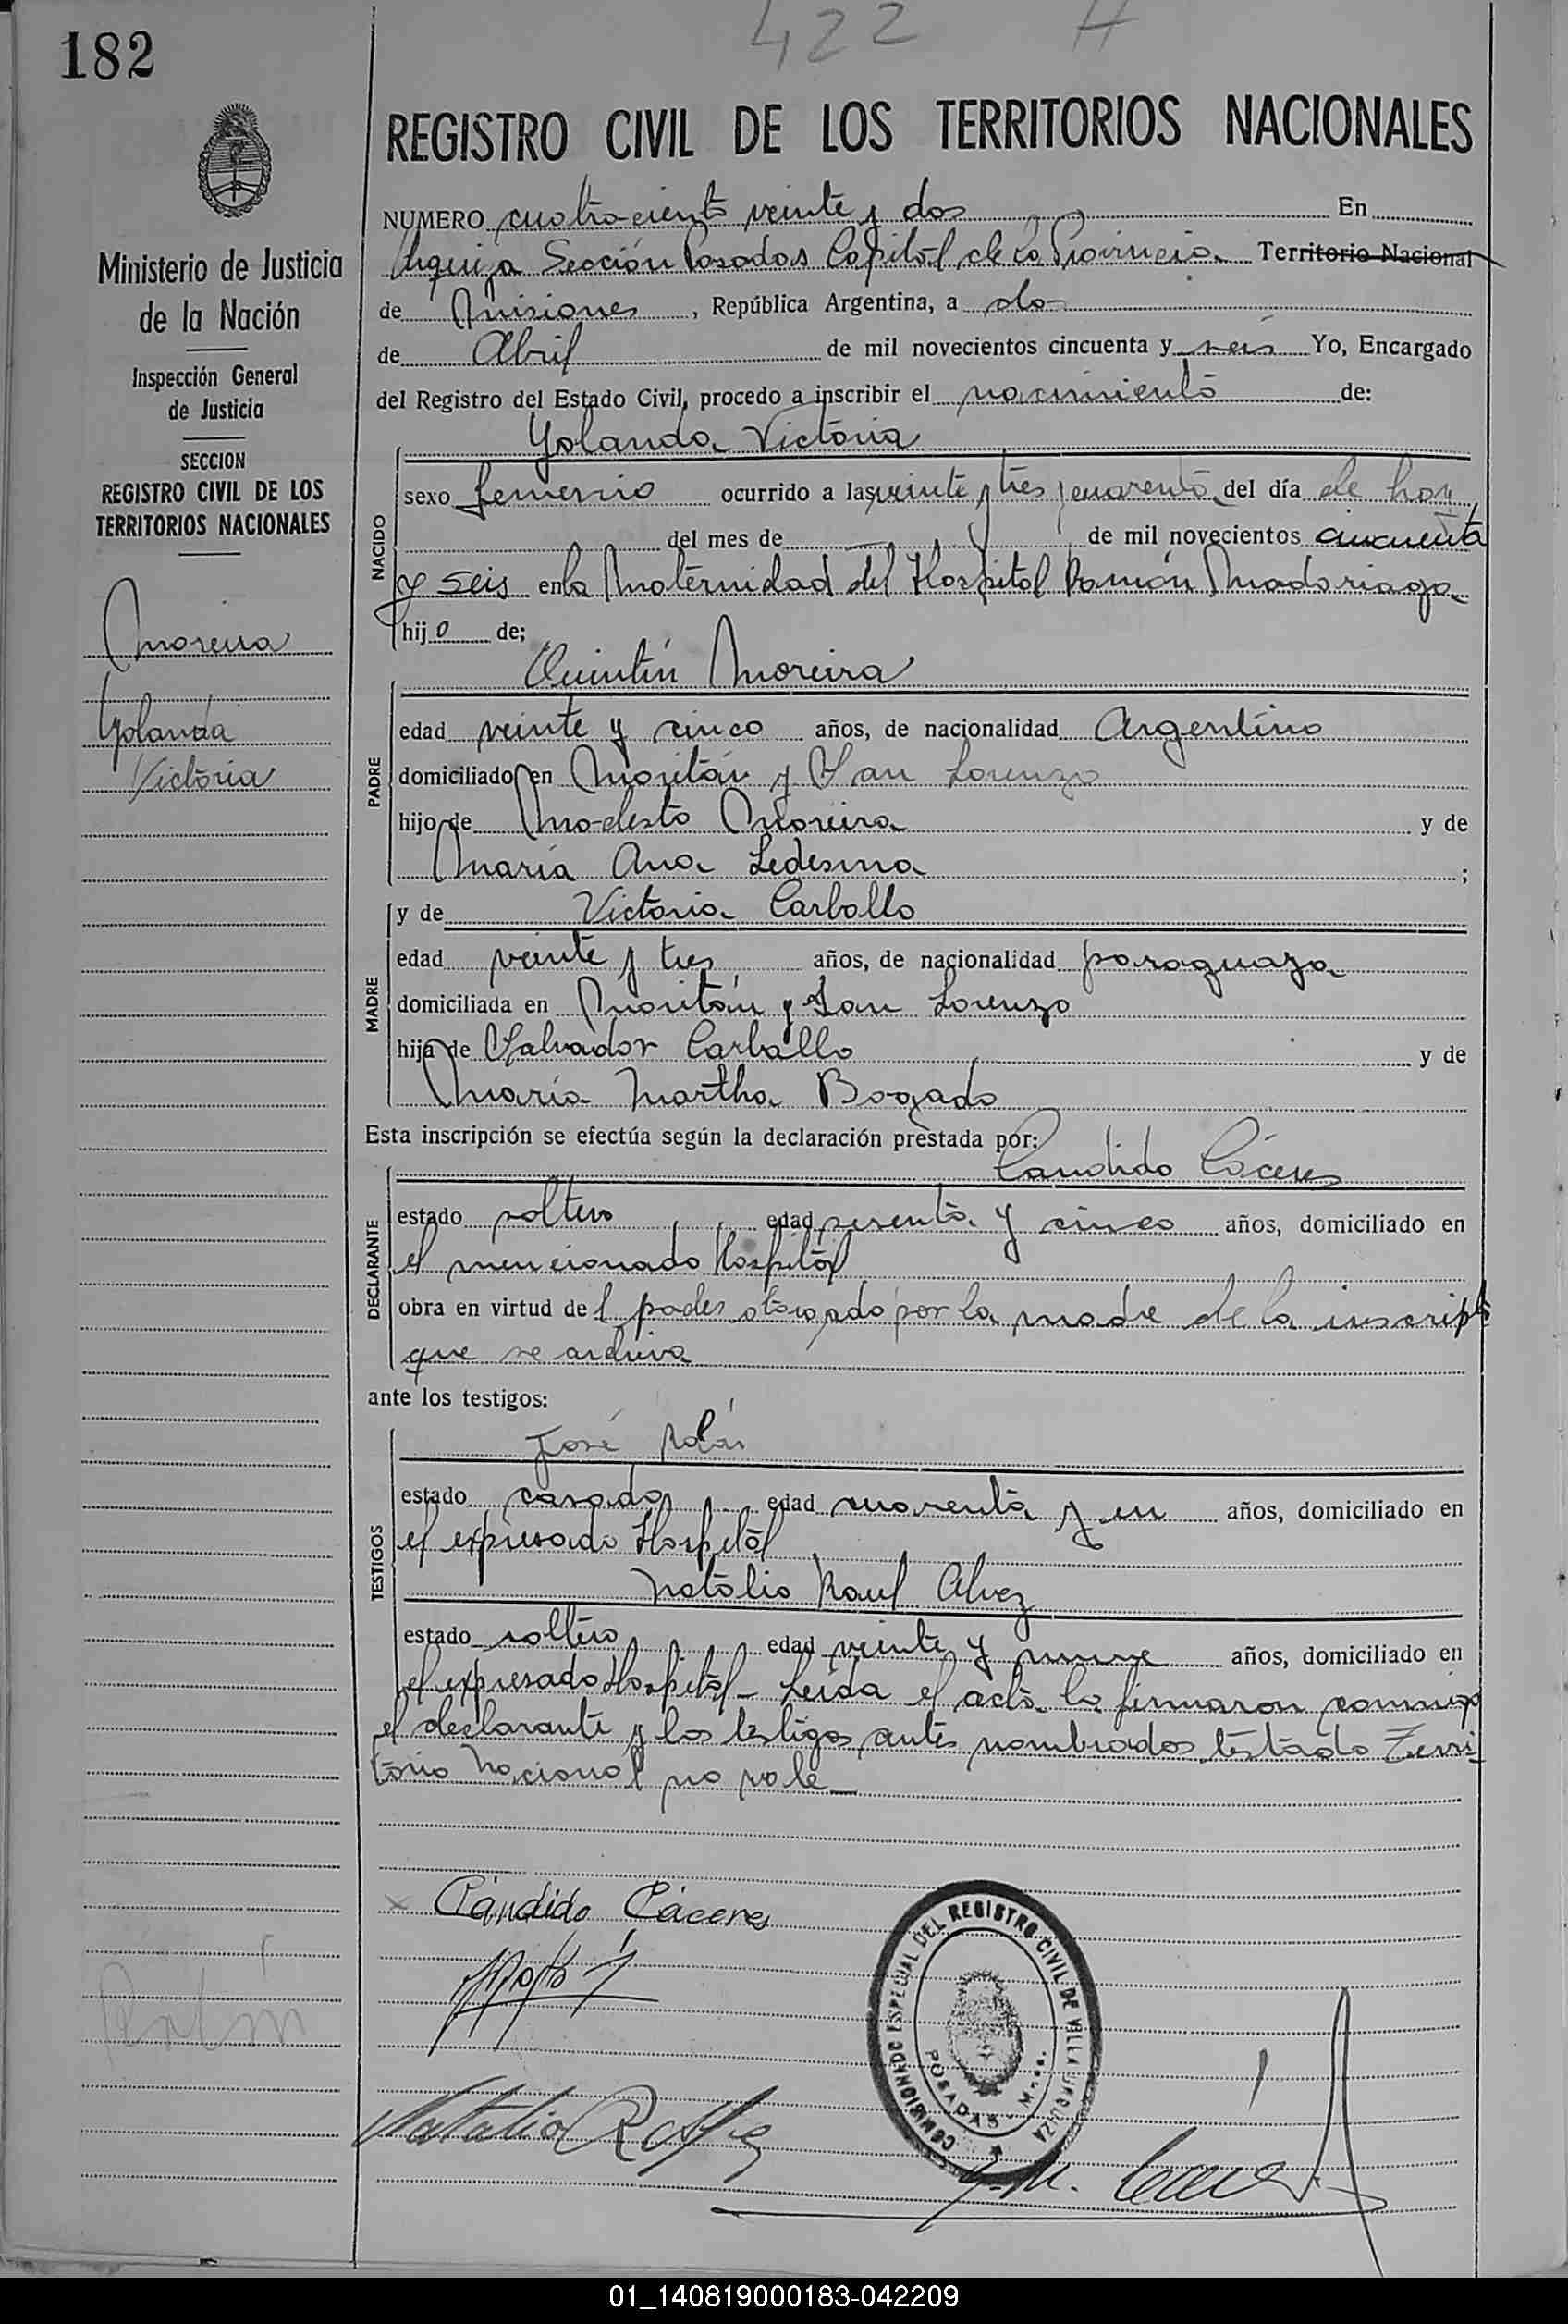 422 H
182
REGISTRO CIVIL DE LOS TERRITORIOS NACIONALES
Ministerio de Justicia
de la Nación
Inspección General
de Justicia
SECCION
REGISTRO CIVIL DE LOS
TERRITORIOS NACIONALES
Moreira
Yolanda
Victoria
NUMERO cuatrociento veinte y dos En
Urquiza Sección Posadas Capital de la Provincia Territorio Nacional
de Misiones, República Argentina, a dos
de Abril de mil novecientos cincuenta y seis Yo, Encargado
del Registro del Estado Civil, procedo a inscribir el nacimiento de:
Yolanda Victoria
NACIDO
sexo femenino ocurrido a las veinte y tres y cuarenta del día de hoy
del mes de de mil novecientos cincuenta
y seis en la Maternidad del Hospital Ramón Madariaga
hijo de;
Quintín Moreira
PADRE
edad veinte y cinco años, de nacionalidad Argentino
domiciliado en y San Lorenzo
hijo de Modesto Moreira y de
María Ana Ledesma ;
y de Victoria Carballo
MADRE
edad veinte y tres años, de nacionalidad paraguaya
domiciliada en y San Lorenzo
hija de Salvador Carballo y de
María Martha Bogado
Esta inscripción se efectúa según la declaración prestada por:
Candido Cáceres
DECLARANTE
estado soltero edad sesenta y cinco años, domiciliado en
el mencionado Hospital
obra en virtud del poder otorgado por la madre de la inscripta
que se archiva
ante los testigos:
José
TESTIGOS
estado casado edad cuarenta y un años, domiciliado en
el expresado Hospital
Natalio Raul Alvez
estado soltero edad veinte y nueve años, domiciliado en
el expresado Hospital - Leída el acta la firmaron conmigo
el declarante y los testigos antes nombrados testado Terri-
torio Nacional no vale
x Cándido Cáceres
COMISIONADO ESPECIAL DEL REGISTRO CIVIL DE VILLA URQUIZA
POSADAS - Mnes.
01_140819000183-042209